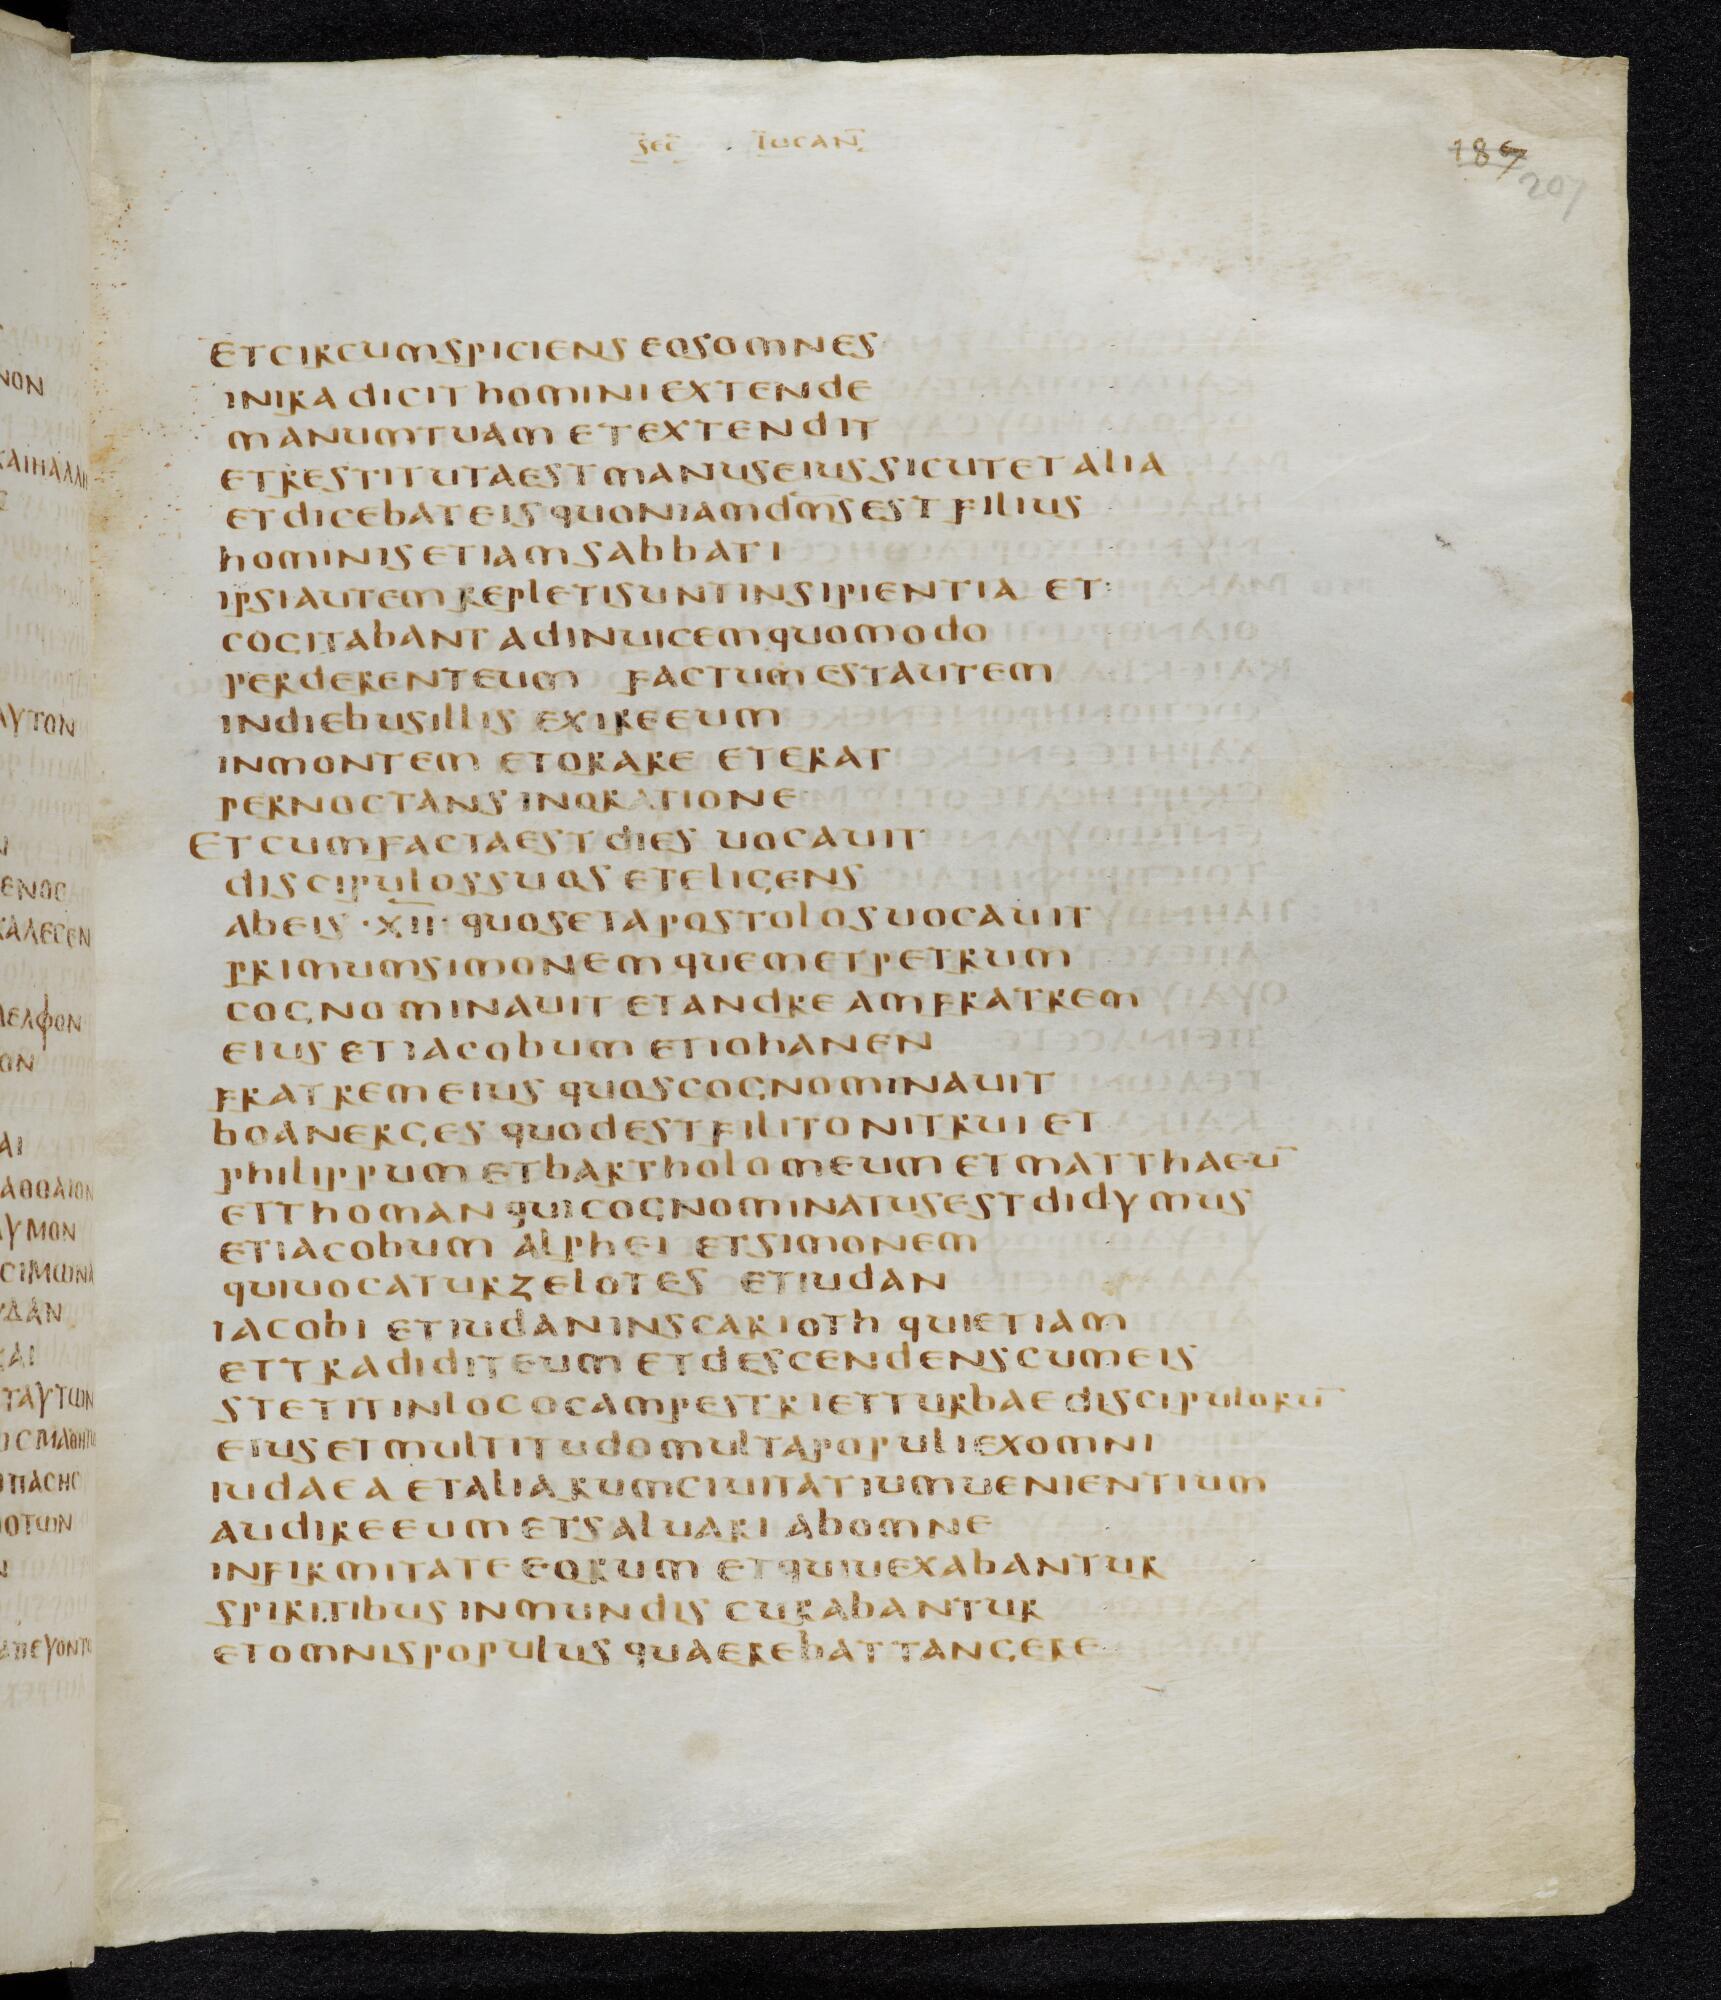 sec̄ lucan̄
187
207
ET CIRCUMSPICIENS EOS OMNES
IN IRA DICIT HOMINI EXTENDE
MANUM TUAM ET EXTENDIT
ET RESTITUTA EST MANUS EIUS SICUT ET ALIA
ET DICEBAT EIS QUONIAM DM̅S EST FILIUS
HOMINIS ETIAM SABBATI
IPSI AUTEM REPLETI SUNT INSIPIENTIA ET
COGITABANT AD INUICEM QUOMODO
PERDERENT EUM FACTUM EST AUTEM
IN DIEBUS ILLIS EXIRE EUM
IN MONTEM ET ORARE ET ERAT
PERNOCTANS IN ORATIONE
ET CUM FACTA EST DIES UOCAUIT
DISCIPULOS SUOS ET ELIGENS
AB EIS ·XII· QUOS ET APOSTOLOS UOCAUIT
PRIMUM SIMONEM QUEM ET PETRUM
COGNOMINAUIT ET ANDREAM FRATREM
EIUS ET IACOBUM ET IOHANEN
FRATREM EIUS QUOS COGNOMINAUIT
BOANERGES QUOD EST FILI TONITRUI ET
PHILIPPUM ET BARTHOLOMEUM ET MATTHAEU̅
ET THOMAN QUI COGNOMINATUS EST DIDYMUS
ET IACOBUM ALPHEI ET SIMONEM
QUI UOCATUR ZELOTES ET IUDAN
IACOBI ET IUDAN INSCARIOTH QUI ETIAM
ET TRADIDIT EUM ET DESCENDENS CUM EIS
STETIT IN LOCO CAMPESTRI ET TURBAE DISCIPULORU̅
EIUS ET MULTITUDO MULTA POPULI EX OMNI
IUDAEA ET ALIARUM CIUITATIUM UENIENTIUM
AUDIRE EUM ET SALUARI AB OMNE
INFIRMITATE EORUM ET QUI UEXABANTUR
SPIRITIBUS INMUNDIS CURABANTUR
ET OMNIS POPULUS QUAEREBAT TANGERE